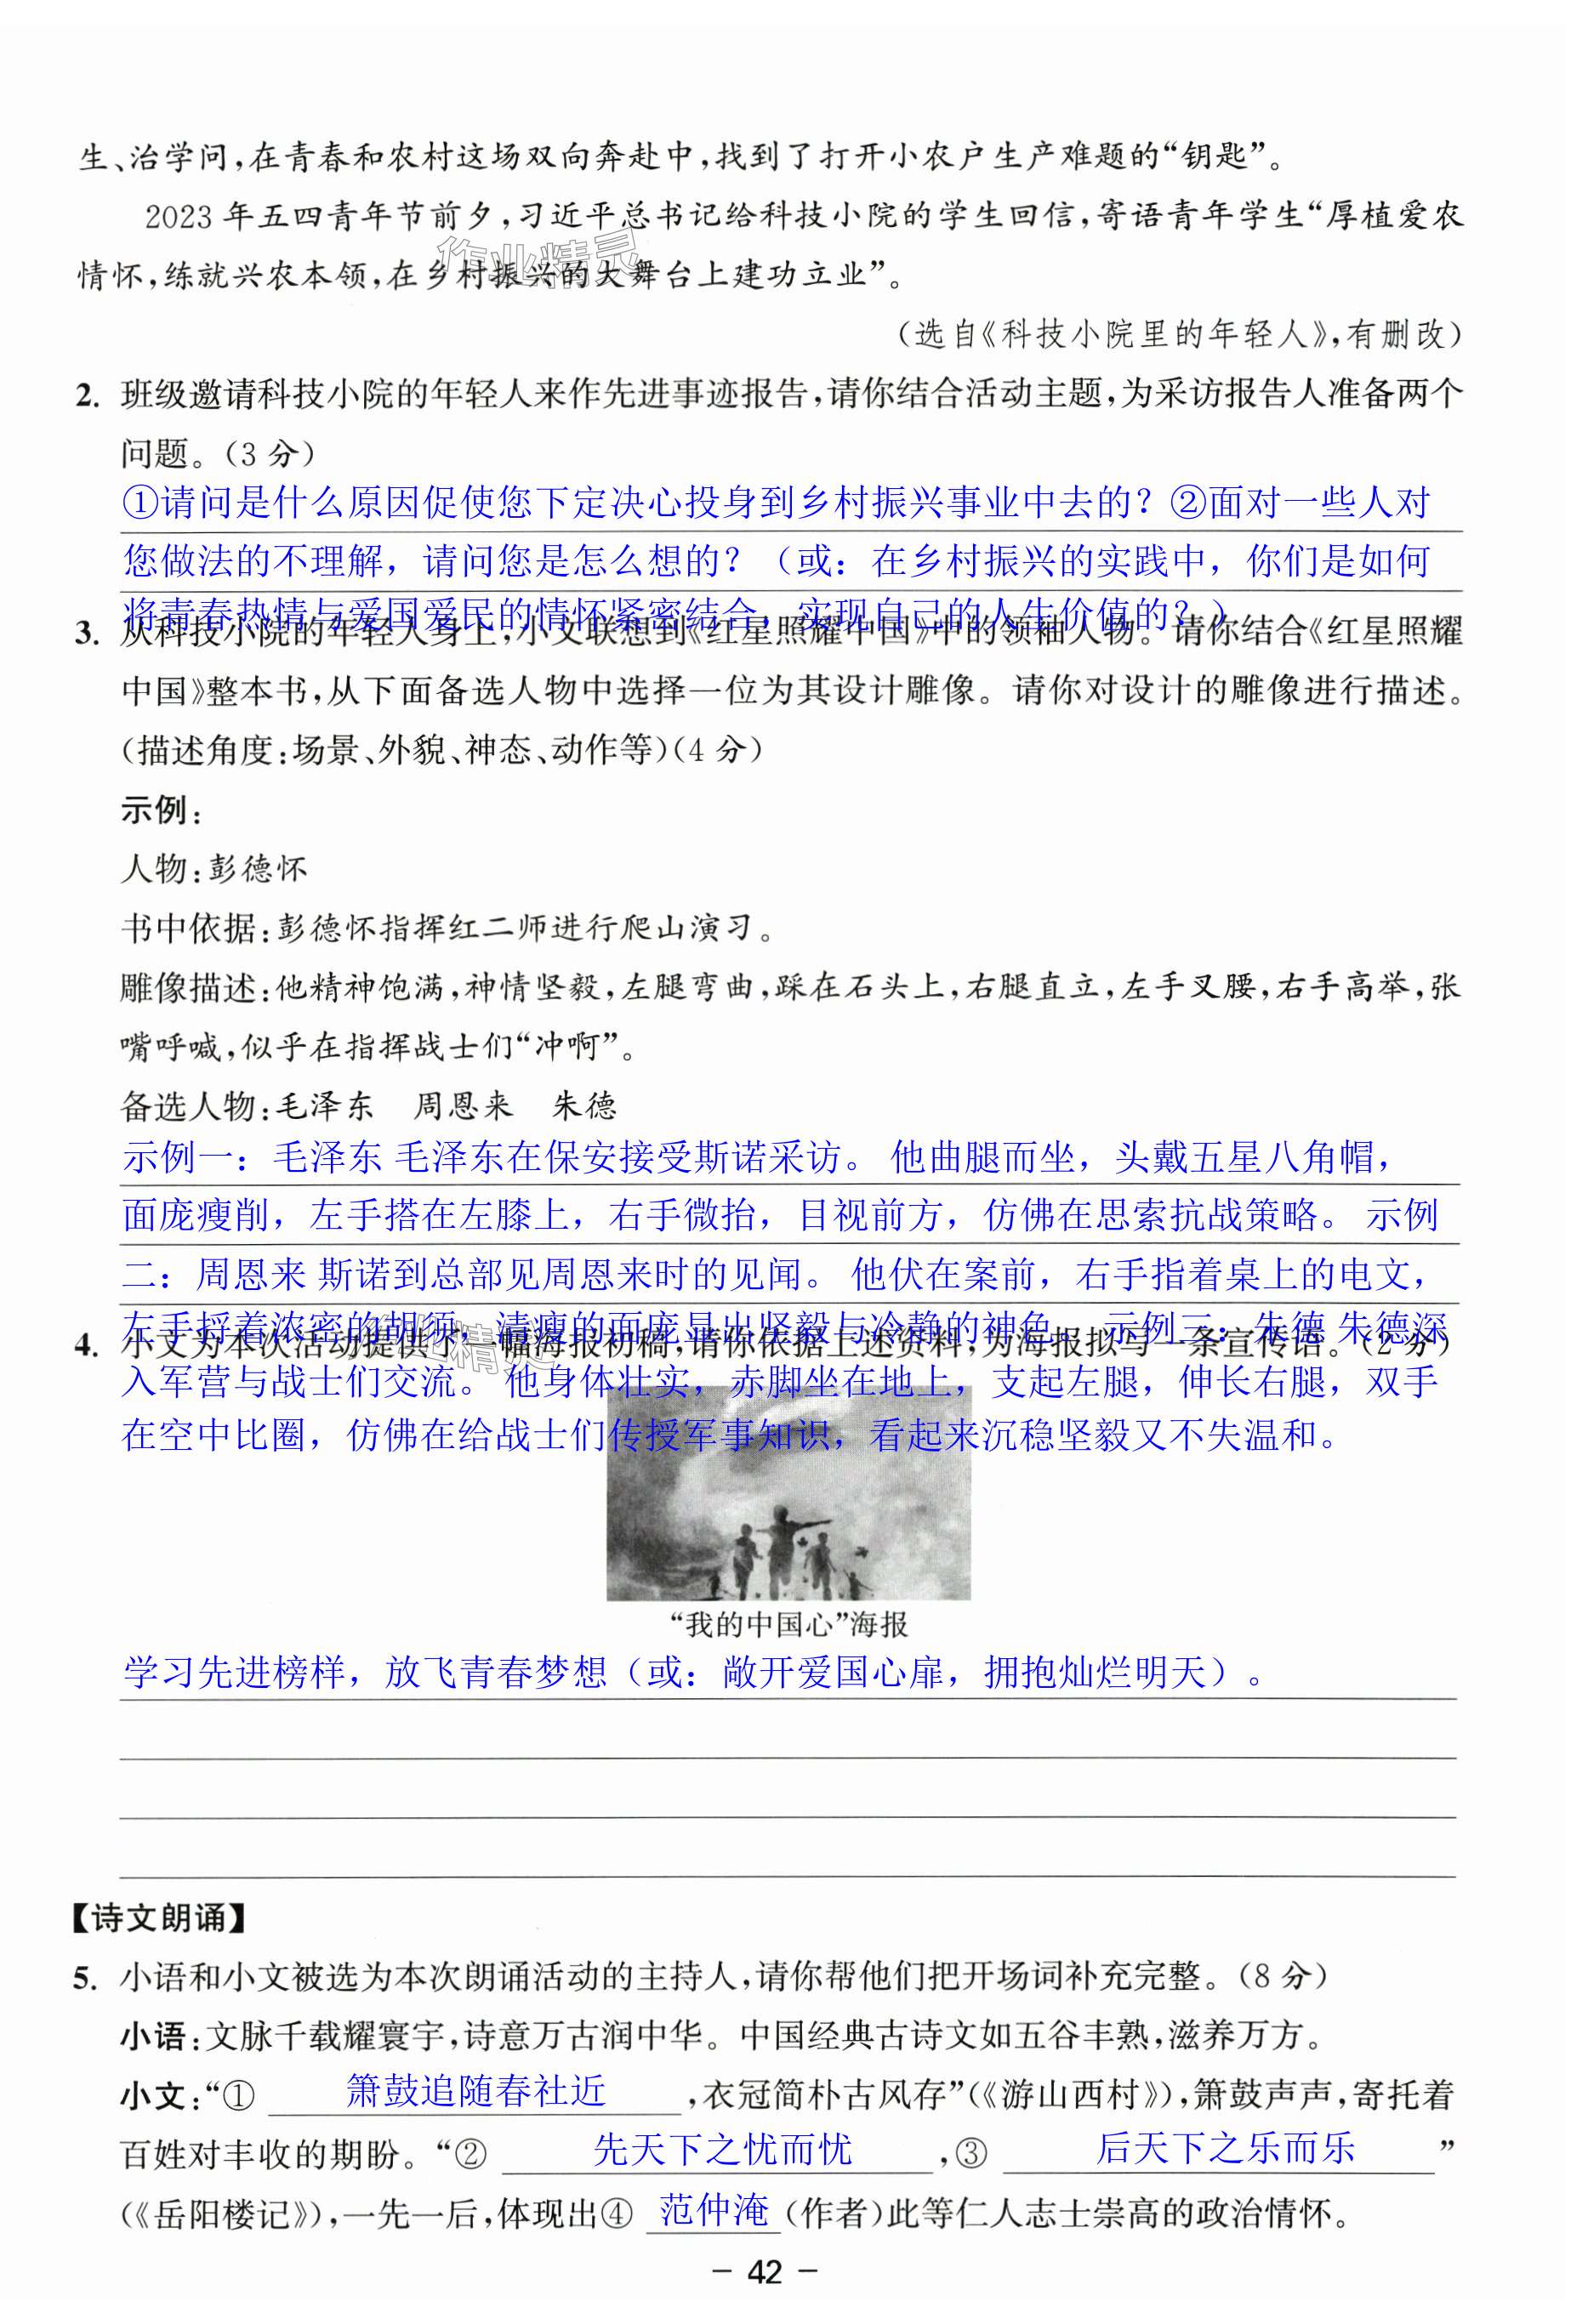 生、治学问,在青春和农村这场双向奔赴中,找到了打开小农户生产难题的“钥匙”。
2023年五四青年节前夕,习近平总书记给科技小院的学生回信,寄语青年学生“厚植爱农
情怀,练就兴农本领,在乡村振兴的大舞台上建功立业”。
作业精灵
(选自《科技小院里的年轻人》,有删改)
2. 班级邀请科技小院的年轻人来作先进事迹报告,请你结合活动主题,为采访报告人准备两个
问题。(3分)
①请问是什么原因促使您下定决心投身到乡村振兴事业中去的?②面对一些人对
您做法的不理解,请问您是怎么想的?(或:在乡村振兴的实践中,你们是如何
将青春热情与爱国爱民的情怀紧密结合,实现自己的人生价值的?)
3. 从科技小院的年轻人身上,小文联想到《红星照耀中国》中的领袖人物。请你结合《红星照耀
中国》整本书,从下面备选人物中选择一位为其设计雕像。请你对设计的雕像进行描述。
(描述角度:场景、外貌、神态、动作等)(4分)
示例:
人物:彭德怀
书中依据:彭德怀指挥红二师进行爬山演习。
雕像描述:他精神饱满,神情坚毅,左腿弯曲,踩在石头上,右腿直立,左手叉腰,右手高举,张
嘴呼喊,似乎在指挥战士们“冲啊”。
备选人物:毛泽东 周恩来 朱德
示例一:毛泽东 毛泽东在保安接受斯诺采访。 他曲腿而坐,头戴五星八角帽,
面庞瘦削,左手搭在左膝上,右手微抬,目视前方,仿佛在思索抗战策略。 示例
二:周恩来 斯诺到总部见周恩来时的见闻。 他伏在案前,右手指着桌上的电文,
左手捋着浓密的胡须,清瘦的面庞显出坚毅与冷静的神色。 示例三:朱德 朱德深
4. 小文为本次活动提供了一幅海报初稿,请你依据上述资料,为海报拟写一条宣传语。(2分)
作业精灵
入军营与战士们交流。 他身体壮实,赤脚坐在地上,支起左腿,伸长右腿,双手
在空中比圈,仿佛在给战士们传授军事知识,看起来沉稳坚毅又不失温和。
“我的中国心”海报
学习先进榜样,放飞青春梦想(或:敞开爱国心扉,拥抱灿烂明天)。
【诗文朗诵】
5. 小语和小文被选为本次朗诵活动的主持人,请你帮他们把开场词补充完整。(8分)
小语:文脉千载耀寰宇,诗意万古润中华。中国经典古诗文如五谷丰熟,滋养万方。
小文:“① 箫鼓追随春社近 ,衣冠简朴古风存”(《游山西村》),箫鼓声声,寄托着
百姓对丰收的期盼。“② 先天下之忧而忧 ,③ 后天下之乐而乐 ”
(《岳阳楼记》),一先一后,体现出④ 范仲淹 (作者)此等仁人志士崇高的政治情怀。
- 42 -